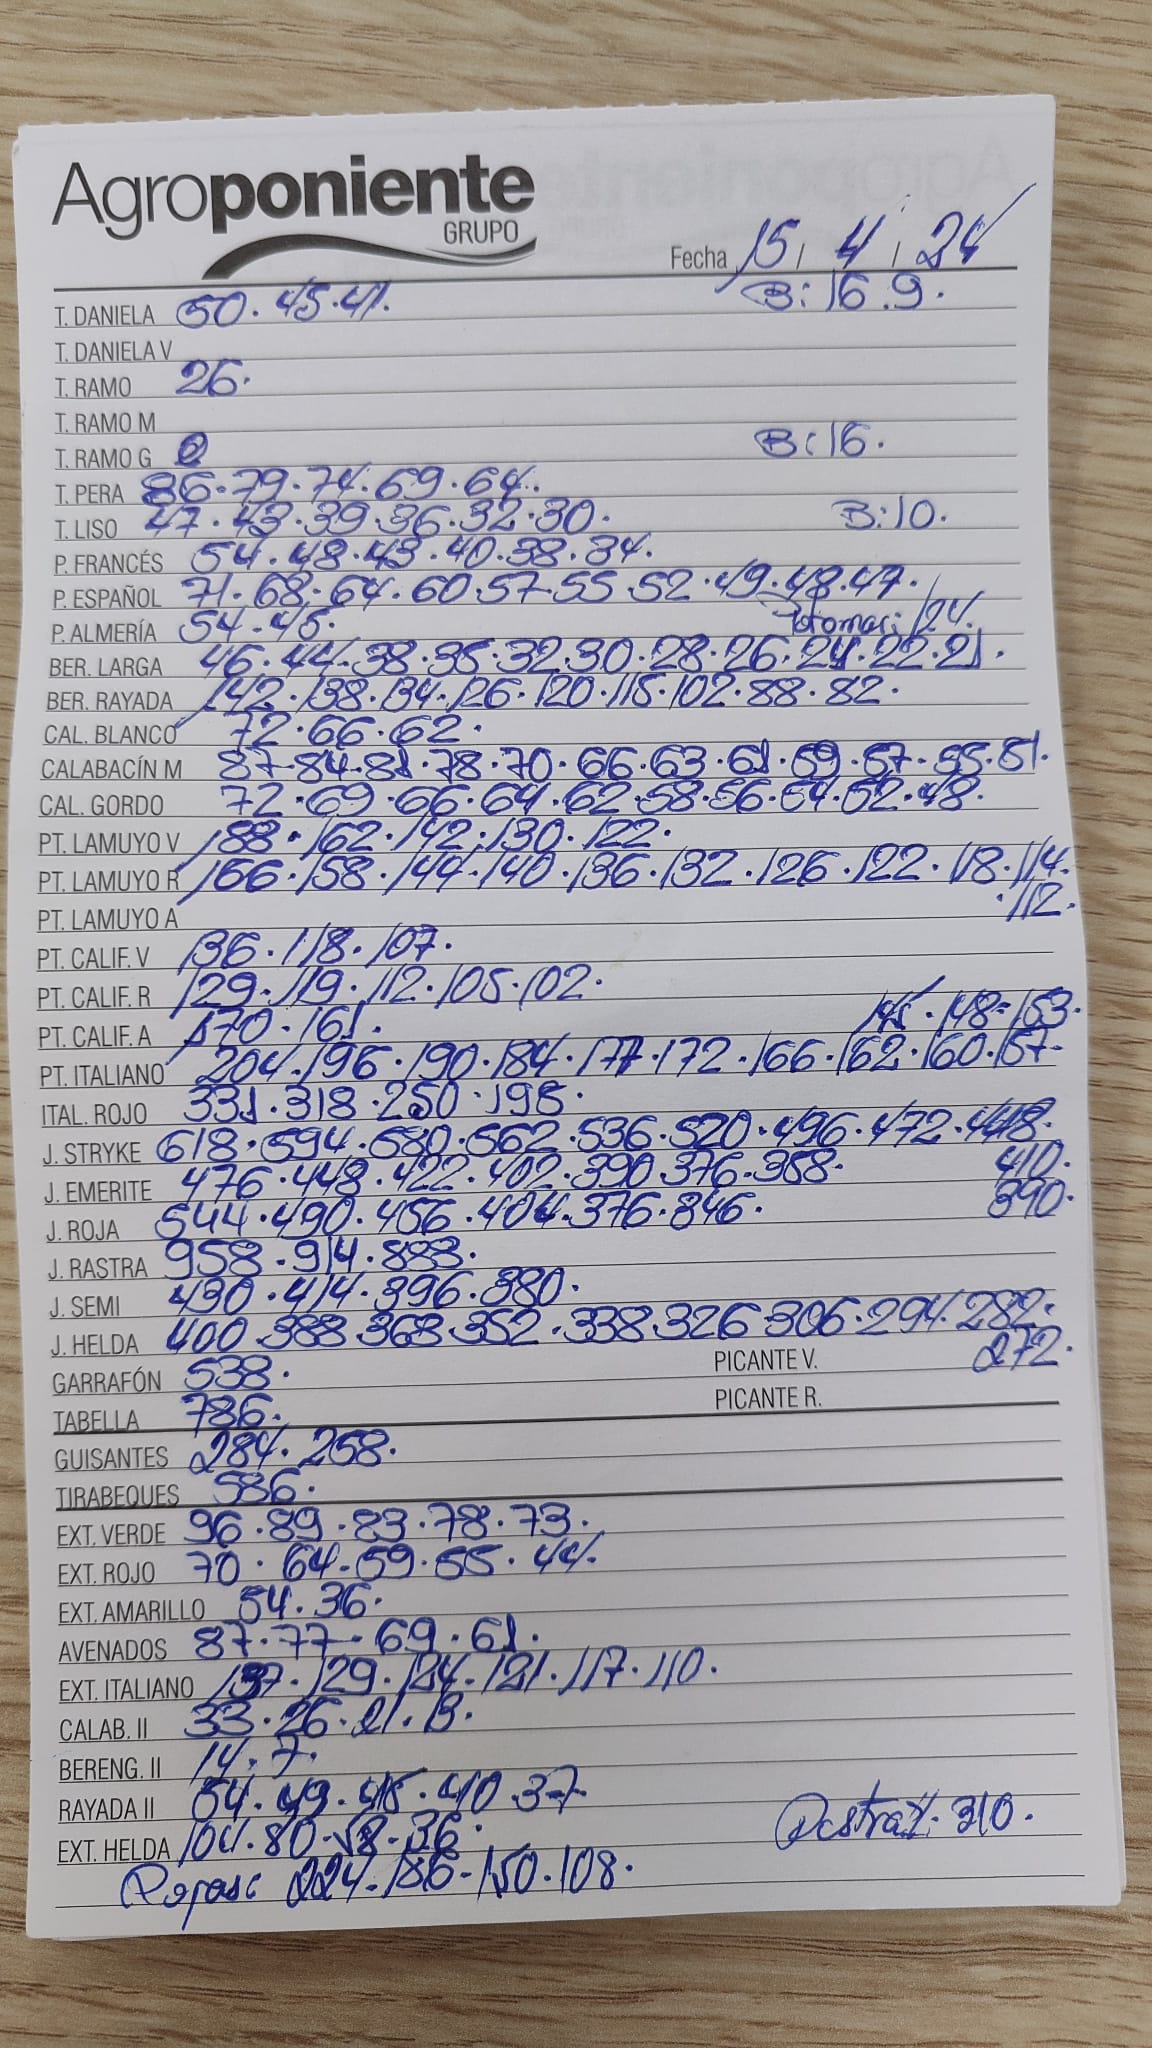 Agroponiente
GRUPO
Fecha 15 / 4 / 24
T. DANIELA 50. 45. 41. B: 16. 9.
T. DANIELA V
T. RAMO 26.
T. RAMO M
T. RAMO G B: 16.
T. PERA 86. 79. 74. 69. 64.
T. LISO 47. 43. 39. 36. 32. 30. B: 10.
P. FRANCÉS 54. 48. 43. 40. 38. 34.
P. ESPAÑOL 71. 68. 64. 60. 57. 55. 52. 49. 48. 47.
P. ALMERÍA 54. 45. 124.
BER. LARGA 46. 44. 38. 35. 32. 30. 28. 26. 24. 22. 21.
BER. RAYADA 142. 138. 134. 126. 120. 115. 102. 88. 82.
CAL. BLANCO 72. 66. 62.
CALABACÍN M 87. 84. 81. 78. 70. 66. 63. 61. 59. 57. 55. 51.
CAL. GORDO 72. 69. 66. 64. 62. 58. 56. 54. 52. 48.
PT. LAMUYO V 188. 162. 142. 130. 122.
PT. LAMUYO R 166. 158. 144. 140. 136. 132. 126. 122. 118. 114.
PT. LAMUYO A 112.
PT. CALIF. V 136. 118. 107.
PT. CALIF. R 129. 119. 112. 105. 102.
PT. CALIF. A 170. 161. 145. 148. 153.
PT. ITALIANO 204. 196. 190. 184. 177. 172. 166. 162. 160. 157.
ITAL. ROJO 331. 318. 250. 198.
J. STRYKE 618. 594. 580. 562. 536. 520. 496. 472. 448.
J. EMERITE 476. 448. 422. 402. 390. 376. 358. 410.
J. ROJA 544. 490. 456. 404. 376. 346. 390.
J. RASTRA 958. 914. 883.
J. SEMI 430. 414. 396. 380.
J. HELDA 400. 388. 368. 352. 338. 326. 306. 294. 282.
GARRAFÓN 538. PICANTE V. 272.
TABELLA 786. PICANTE R.
GUISANTES 284. 258.
TIRABEQUES 586.
EXT. VERDE 96. 89. 83. 78. 73.
EXT. ROJO 70. 64. 59. 55. 44.
EXT. AMARILLO 54. 36.
AVENADOS 87. 77. 69. 61.
EXT. ITALIANO 137. 129. 124. 121. 117. 110.
CALAB. II 33. 26. 21. 13.
BERENG. II 14. 7.
RAYADA II 54. 49. 45. 40. 37.
EXT. HELDA 104. 80. 58. 36. 310.
224. 186. 150. 108.